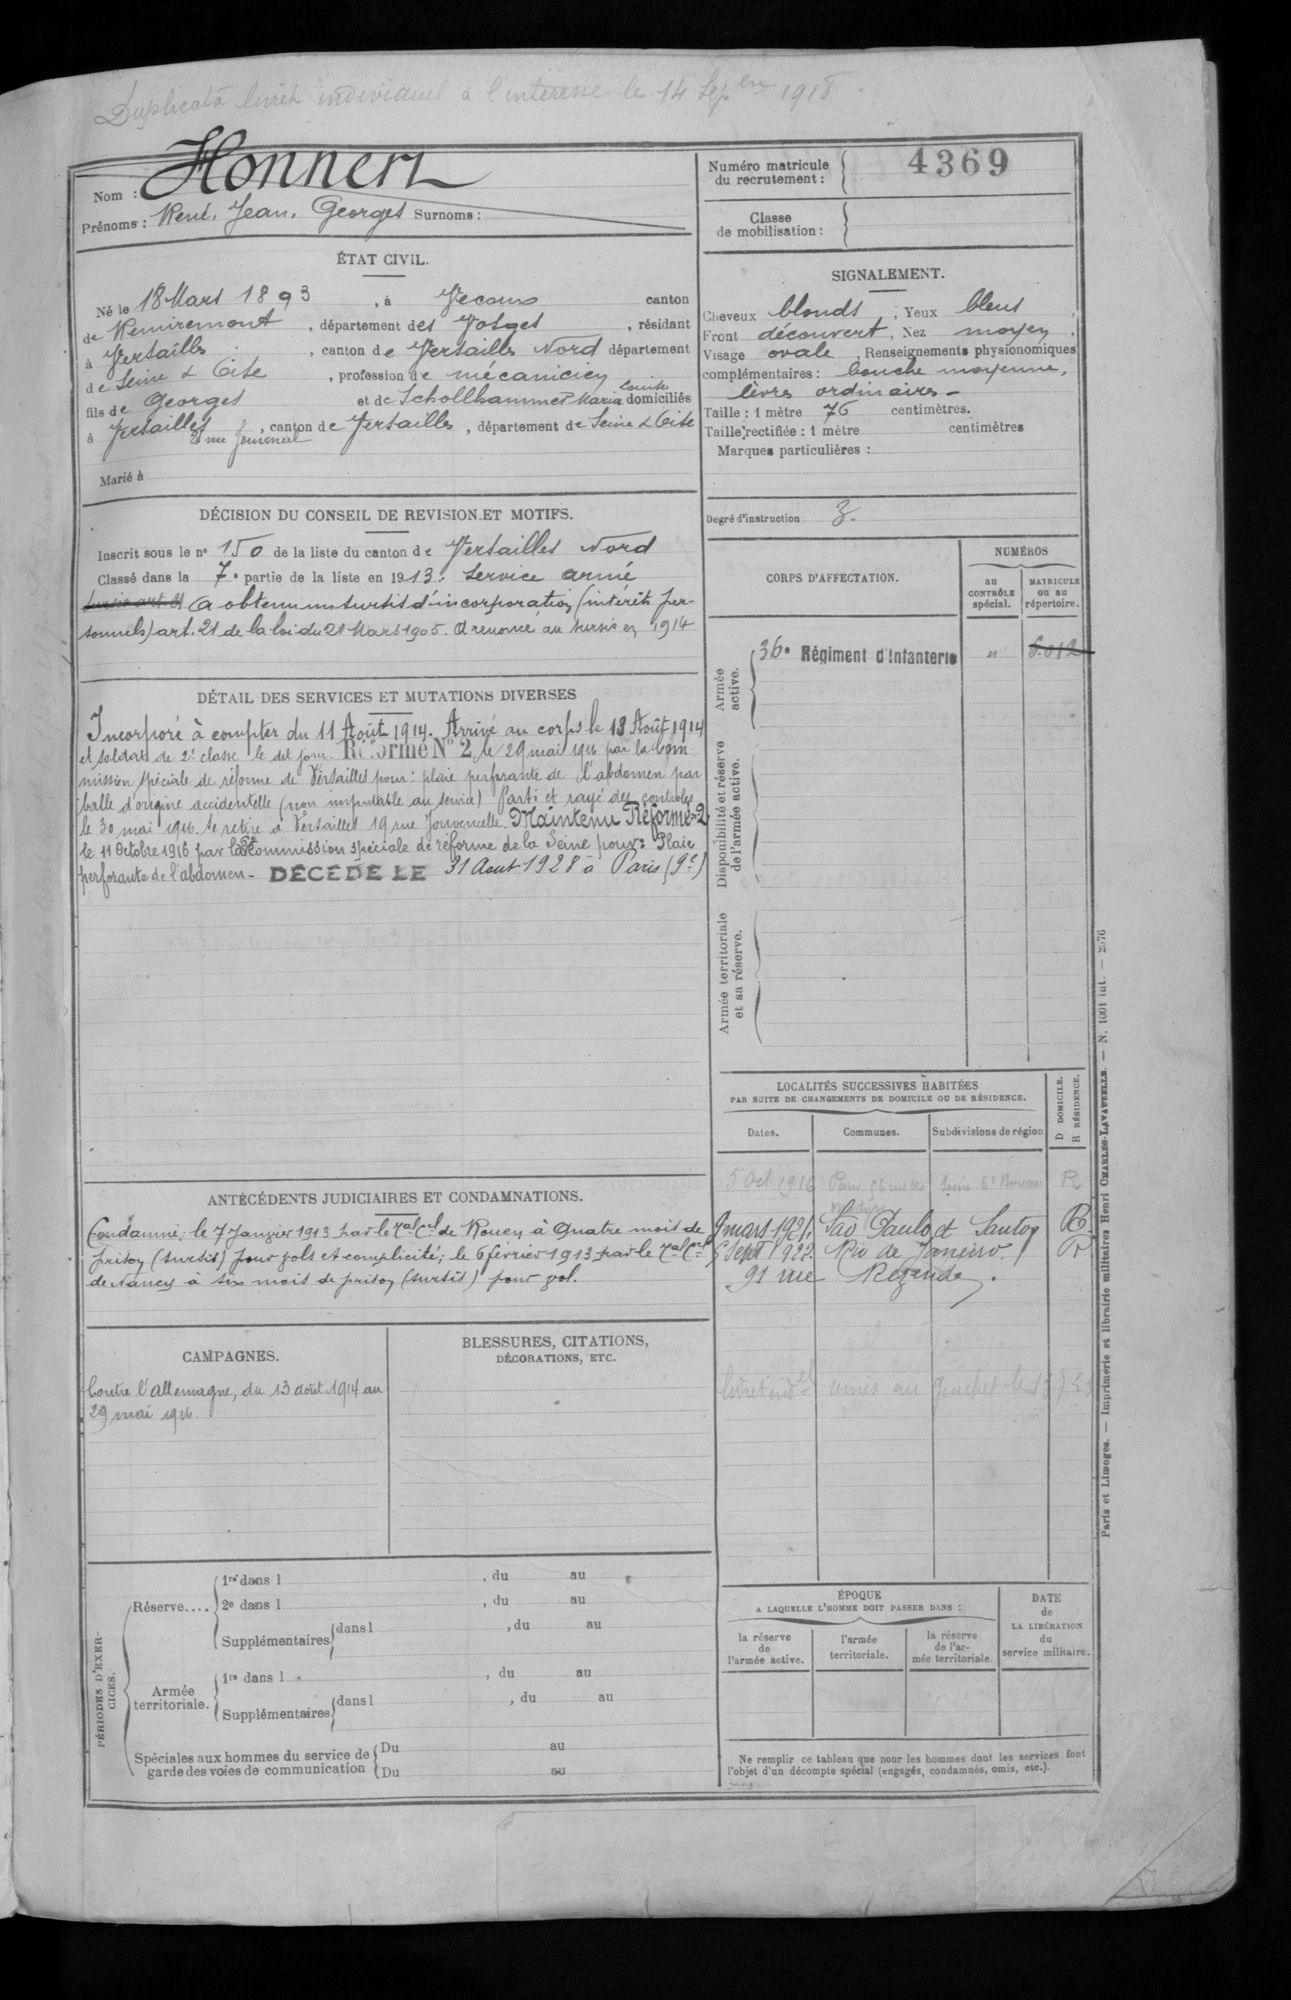 Duplicata livret individuel à l'intéressé le 14 Sepbre 1918
Nom : Honnert
Prénoms : René, Jean, Georges Surnoms :
Numéro matricule
du recrutement : 4369
Classe
de mobilisation :
ÉTAT CIVIL.
Né le 18 Mars 1893, à Vecoux canton
de Remiremont, département des Vosges, résidant
à Versailles, canton de Versailles Nord département
de Seine & Oise, profession de mécanicien
fils de Georges et de Schollhammer Maria Louise domiciliés
à Versailles, canton de Versailles, département de Seine & Oise
rue
Marié à
SIGNALEMENT.
Cheveux blonds ; Yeux bleus ,
Front découvert, Nez moyen ,
Visage ovale , Renseignements physionomiques
complémentaires : bouche moyenne,
lèvres ordinaires -
Taille : 1 mètre 76 centimètres.
Taille rectifiée : 1 mètre centimètres
Marques particulières :
Degré d'instruction : 3.
DÉCISION DU CONSEIL DE REVISION ET MOTIFS.
Inscrit sous le n° 150 de la liste du canton de Versailles Nord
Classé dans la 7e partie de la liste en 1913 : service armé
Sursis art. 21 A obtenu un sursis d'incorporation (intérêts per-
sonnels) art. 21 de la loi du 21 Mars 1905. A renoncé au sursis en 1914
DÉTAIL DES SERVICES ET MUTATIONS DIVERSES
Incorporé à compter du 11 Août 1914. Arrivé au corps le 13 Août 1914
et soldat de 2e classe le dit jour. Réformé N° 2, le 29 mai 1916 par la Com
mission spéciale de réforme de Versailles pour : plaie perforante de l'abdomen par
balle d'origine accidentelle (non imputable au service) Parti et rayé des contrôles
le 30 mai 1916. Se retire à Versailles 19 rue Jouvencelle. Maintenu Réformé 2
le 11 Octobre 1916 par la Commission spéciale de réforme de la Seine pour : Plaie
perforante de l'abdomen - DÉCÉDÉ LE 31 Aout 1928 à Paris (9e)
CORPS D'AFFECTATION.
NUMÉROS
au
CONTRÔLE
spécial.
MATRICULE
ou au
répertoire.
Armée
active.
36e Régiment d'Infanterie " 6.012
Disponibilité et réserve
de l'armée active.
Armée territoriale
et sa réserve.
LOCALITÉS SUCCESSIVES HABITÉES
PAR SUITE DE CHANGEMENTS DE DOMICILE OU DE RÉSIDENCE.
Dates. Communes. Subdivisions de région
D DOMICILE.
R RÉSIDENCE.
5 Oct 1916 Paris 56 rue des Seine 6e Bureau R
Martyrs
9 mars 1921. Sao Paulo et Santos R
5 Sept 1922. Rio de Janeiro R
91 rue Rezende.
Livret indel remis au
ANTÉCÉDENTS JUDICIAIRES ET CONDAMNATIONS.
Condamné, le 7 Janvier 1913 par le Tal Cel de Rouen à Quatre mois de
prison (sursis) pour vols et complicité ; le 6 février 1913 par le Tal Cel
de Nancy à six mois de prison (sursis) pour vol.
CAMPAGNES.
Contre l'Allemagne, du 13 août 1914 au
29 mai 1916.
BLESSURES, CITATIONS,
DÉCORATIONS, ETC.
PÉRIODES D'EXER-
CICES.
Réserve....
1re dans l , du au
2e dans l , du au
Supplémentaires dans l , du au
Armée
territoriale.
1re dans l , du au
Supplémentaires dans l , du au
Spéciales aux hommes du service de
garde des voies de communication
Du au
Du au
ÉPOQUE
A LAQUELLE L'HOMME DOIT PASSER DANS :
la réserve
de
l'armée active.
l'armée
territoriale.
la réserve
de l'ar-
mée territoriale.
DATE
de
LA LIBÉRATION
du
service militaire.
Ne remplir ce tableau que pour les hommes dont les services font
l'objet d'un décompte spécial (engagés, condamnés, omis, etc.).
Paris et Limoges. — Imprimerie et librairie militaires Henri CHARLES-LAVAUZELLE. — N. 1001 int. — 2576